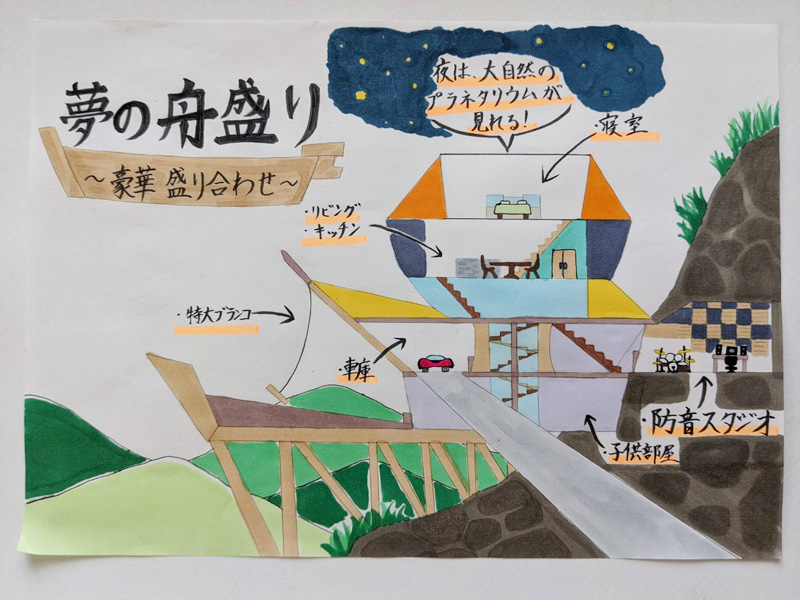 夢の舟盛り
～豪華 盛り合わせ～
夜は、大自然の
プラネタリウムが
見れる！
・寝室
・リビング
・キッチン
・特大ブランコ
・車庫
・防音スタジオ
・子供部屋